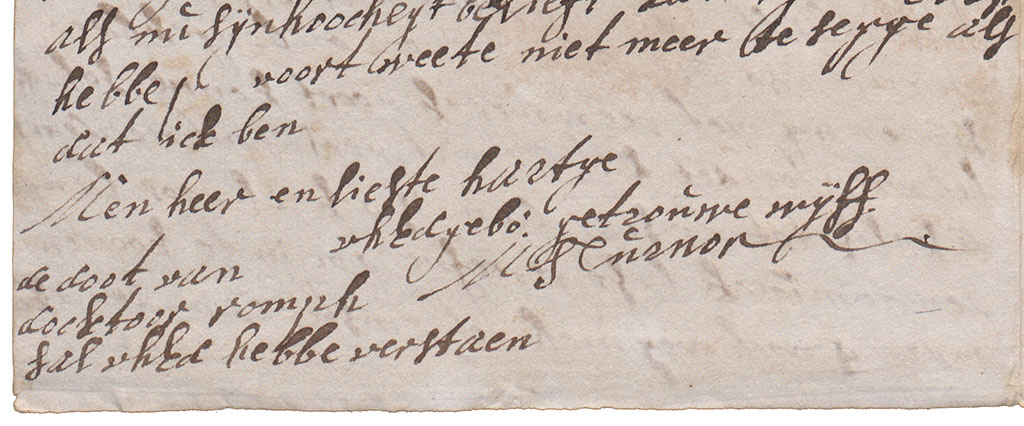 als nu sijn hoocheyt belieft
hebbe, voort weete niet meer te segge als
dat ick ben
Men heer en liefste hartge
uhEdgebo: getrouwe wijff
M Turnor
de doot van
docktoor romph
sal uhEd hebbe verstaen